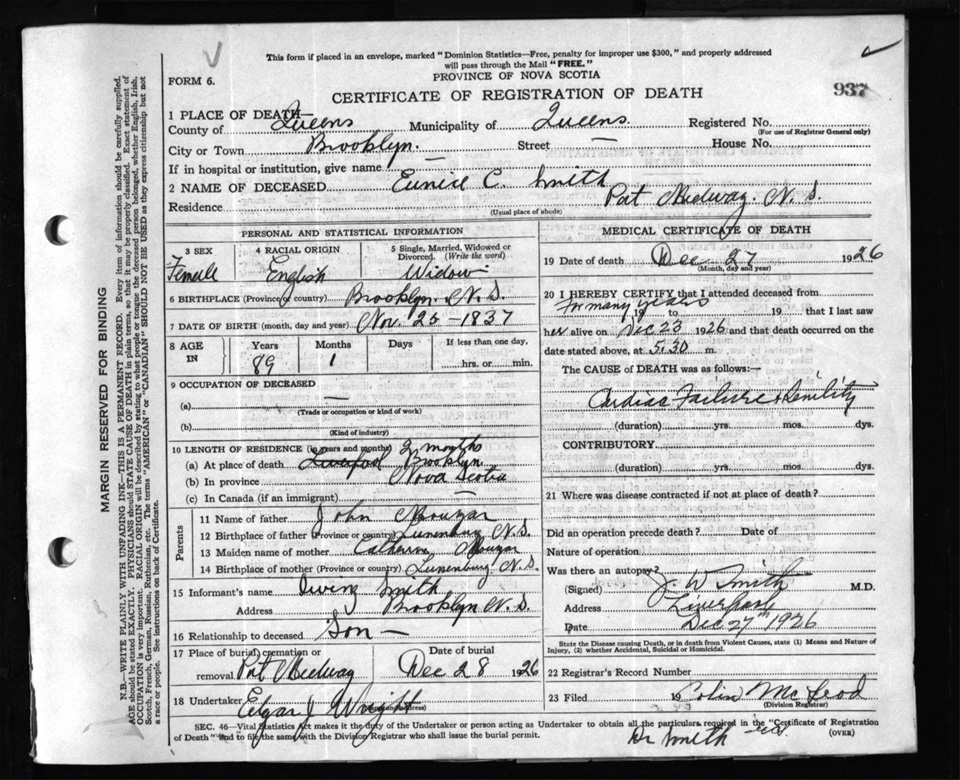 This form if placed in an envelope, marked "Dominion Statistics—Free, penalty for improper use $300," and properly addressed
will pass through the Mail "FREE."
PROVINCE OF NOVA SCOTIA
FORM 6.
937
CERTIFICATE OF REGISTRATION OF DEATH
1 PLACE OF DEATH—
County of Queens Municipality of Queens. Registered No.
(For use of Registrar General only)
City or Town Brooklyn. Street — House No.
If in hospital or institution, give name —
2 NAME OF DECEASED Eunice C. Smith
Residence Port Medway. N. S.
(Usual place of abode)
PERSONAL AND STATISTICAL INFORMATION
3 SEX 4 RACIAL ORIGIN 5 Single, Married, Widowed or
Divorced. (Write the word)
Female English Widow
6 BIRTHPLACE (Province or country) Brooklyn. N.S.
7 DATE OF BIRTH (month, day and year) Nov. 25 - 1837
8 AGE IN Years Months Days If less than one day,
89 1 hrs. or min.
9 OCCUPATION OF DECEASED
(a) —
(Trade or occupation or kind of work)
(b)
(Kind of industry)
10 LENGTH OF RESIDENCE (in years and months) 2 months
(a) At place of death Liverpool Brooklyn
(b) In province Nova Scotia
(c) In Canada (if an immigrant) —
Parents
11 Name of father John
12 Birthplace of father (Province or country) Lunenburg N.S.
13 Maiden name of mother Catherine
14 Birthplace of mother (Province or country) Lunenburg N.S.
15 Informant's name Irving Smith
Address Brooklyn N.S.
16 Relationship to deceased Son —
17 Place of burial, cremation or Date of burial
removal Port Medway Dec 28 1926
18 Undertaker Edgar J Wright
(Address)
MEDICAL CERTIFICATE OF DEATH
19 Date of death Dec 27 1926
(Month, day and year)
20 I HEREBY CERTIFY that I attended deceased from
For many years
19 to 19 that I last saw
her alive on Dec 23 1926 and that death occurred on the
date stated above, at 5.30 m.
The CAUSE of DEATH was as follows:—
Cardiac Failure & Senility
(duration) yrs. mos. dys.
CONTRIBUTORY.
(duration) yrs. mos. dys.
21 Where was disease contracted if not at place of death?
Did an operation precede death? Date of
Nature of operation
Was there an autopsy?
(Signed) J. W Smith M.D.
Address Liverpool
Date Dec 27 1926
State the Disease causing Death, or in death from Violent Causes, state (1) Means and Nature of
Injury, (2) whether Accidental, Suicidal or Homicidal.
22 Registrar's Record Number
23 Filed 19 Colin McLeod
(Division Registrar)
SEC. 46—Vital Statistics Act makes it the duty of the Undertaker or person acting as Undertaker to obtain all the particulars required in the "Certificate of Registration
of Death" and to file the same with the Division Registrar who shall issue the burial permit.
(OVER)
Dr Smith
MARGIN RESERVED FOR BINDING
N.B.—WRITE PLAINLY WITH UNFADING INK—THIS IS A PERMANENT RECORD. Every item of information should be carefully supplied.
AGE should be stated EXACTLY. PHYSICIANS should STATE CAUSE OF DEATH in plain terms, so that it may be properly classified. Exact statement of
OCCUPATION is very important. RACIAL ORIGIN will be described by stating to what people or tongue the deceased person belonged, whether English, Irish,
Scotch, French, German, Russian, Ruthenian, etc. The terms "AMERICAN" or "CANADIAN" SHOULD NOT BE USED as they express citizenship but not
a race or people. See instructions on back of Certificate.